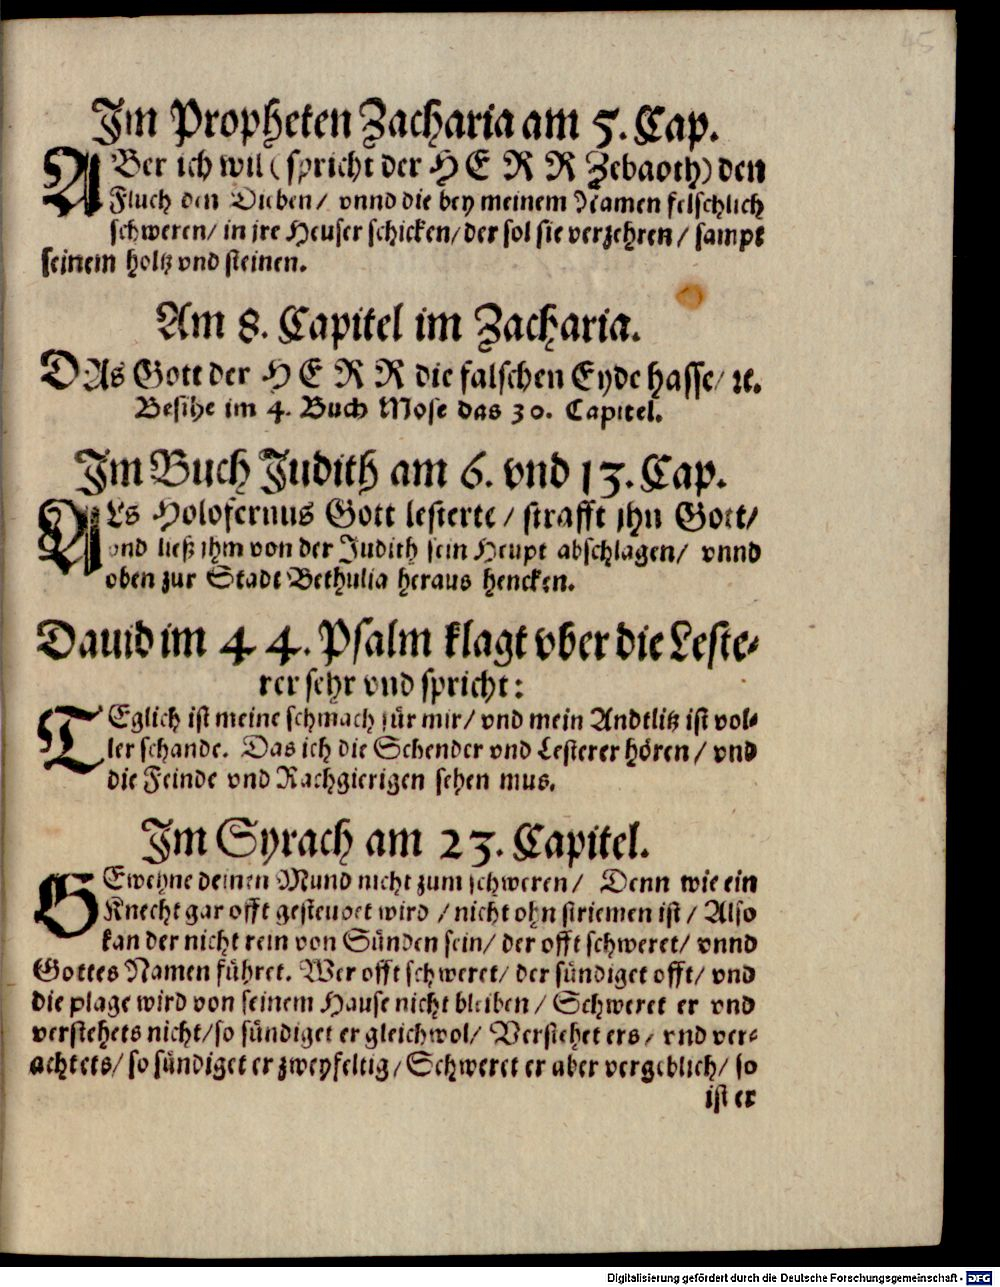 45
Im Propheten Zacharia am 5. Cap.
ABer ich wil (spricht der HERR Zebaoth) den
Fluch den Dieben / vnnd die bey meinem Namen felschlich
schweren / in jre Heuser schicken / der sol sie verzehren / sampt
seinem holtz vnd steinen.
Am 8. Capitel im Zacharia.
DAs Gott der HERR die falschen Eyde hasse / ꝛc.
Besihe im 4. Buch Mose das 30. Capitel.
Im Buch Judith am 6. vnd 13. Cap.
ALs Holofernus Gott lesterte / strafft jhn Gott /
vnd ließ jhm von der Judith sein Heupt abschlagen / vnnd
oben zur Stadt Bethulia heraus hencken.
Dauid im 44. Psalm klagt vber die Leste-
rer sehr vnd spricht:
TEglich ist meine schmach für mir / vnd mein Andtlitz ist vol-
ler schande. Das ich die Schender vnd Lesterer hören / vnd
die Feinde vnd Rachgierigen sehen mus.
Im Syrach am 23. Capitel.
GEwehne deinen Mund nicht zum schweren / Denn wie ein
Knecht gar offt gesteupet wird / nicht ohn striemen ist / Also
kan der nicht rein von Sünden sein / der offt schweret / vnnd
Gottes Namen führet. Wer offt schweret / der sündiget offt / vnd
die plage wird von seinem Hause nicht bleiben / Schweret er vnd
verstehets nicht / so sündiget er gleichwol / Verstehet ers / vnd ver-
achtets / so sündiget er zweyfeltig / Schweret er aber vergeblich / so
ist er
Digitalisierung gefördert durch die Deutsche Forschungsgemeinschaft - DFG